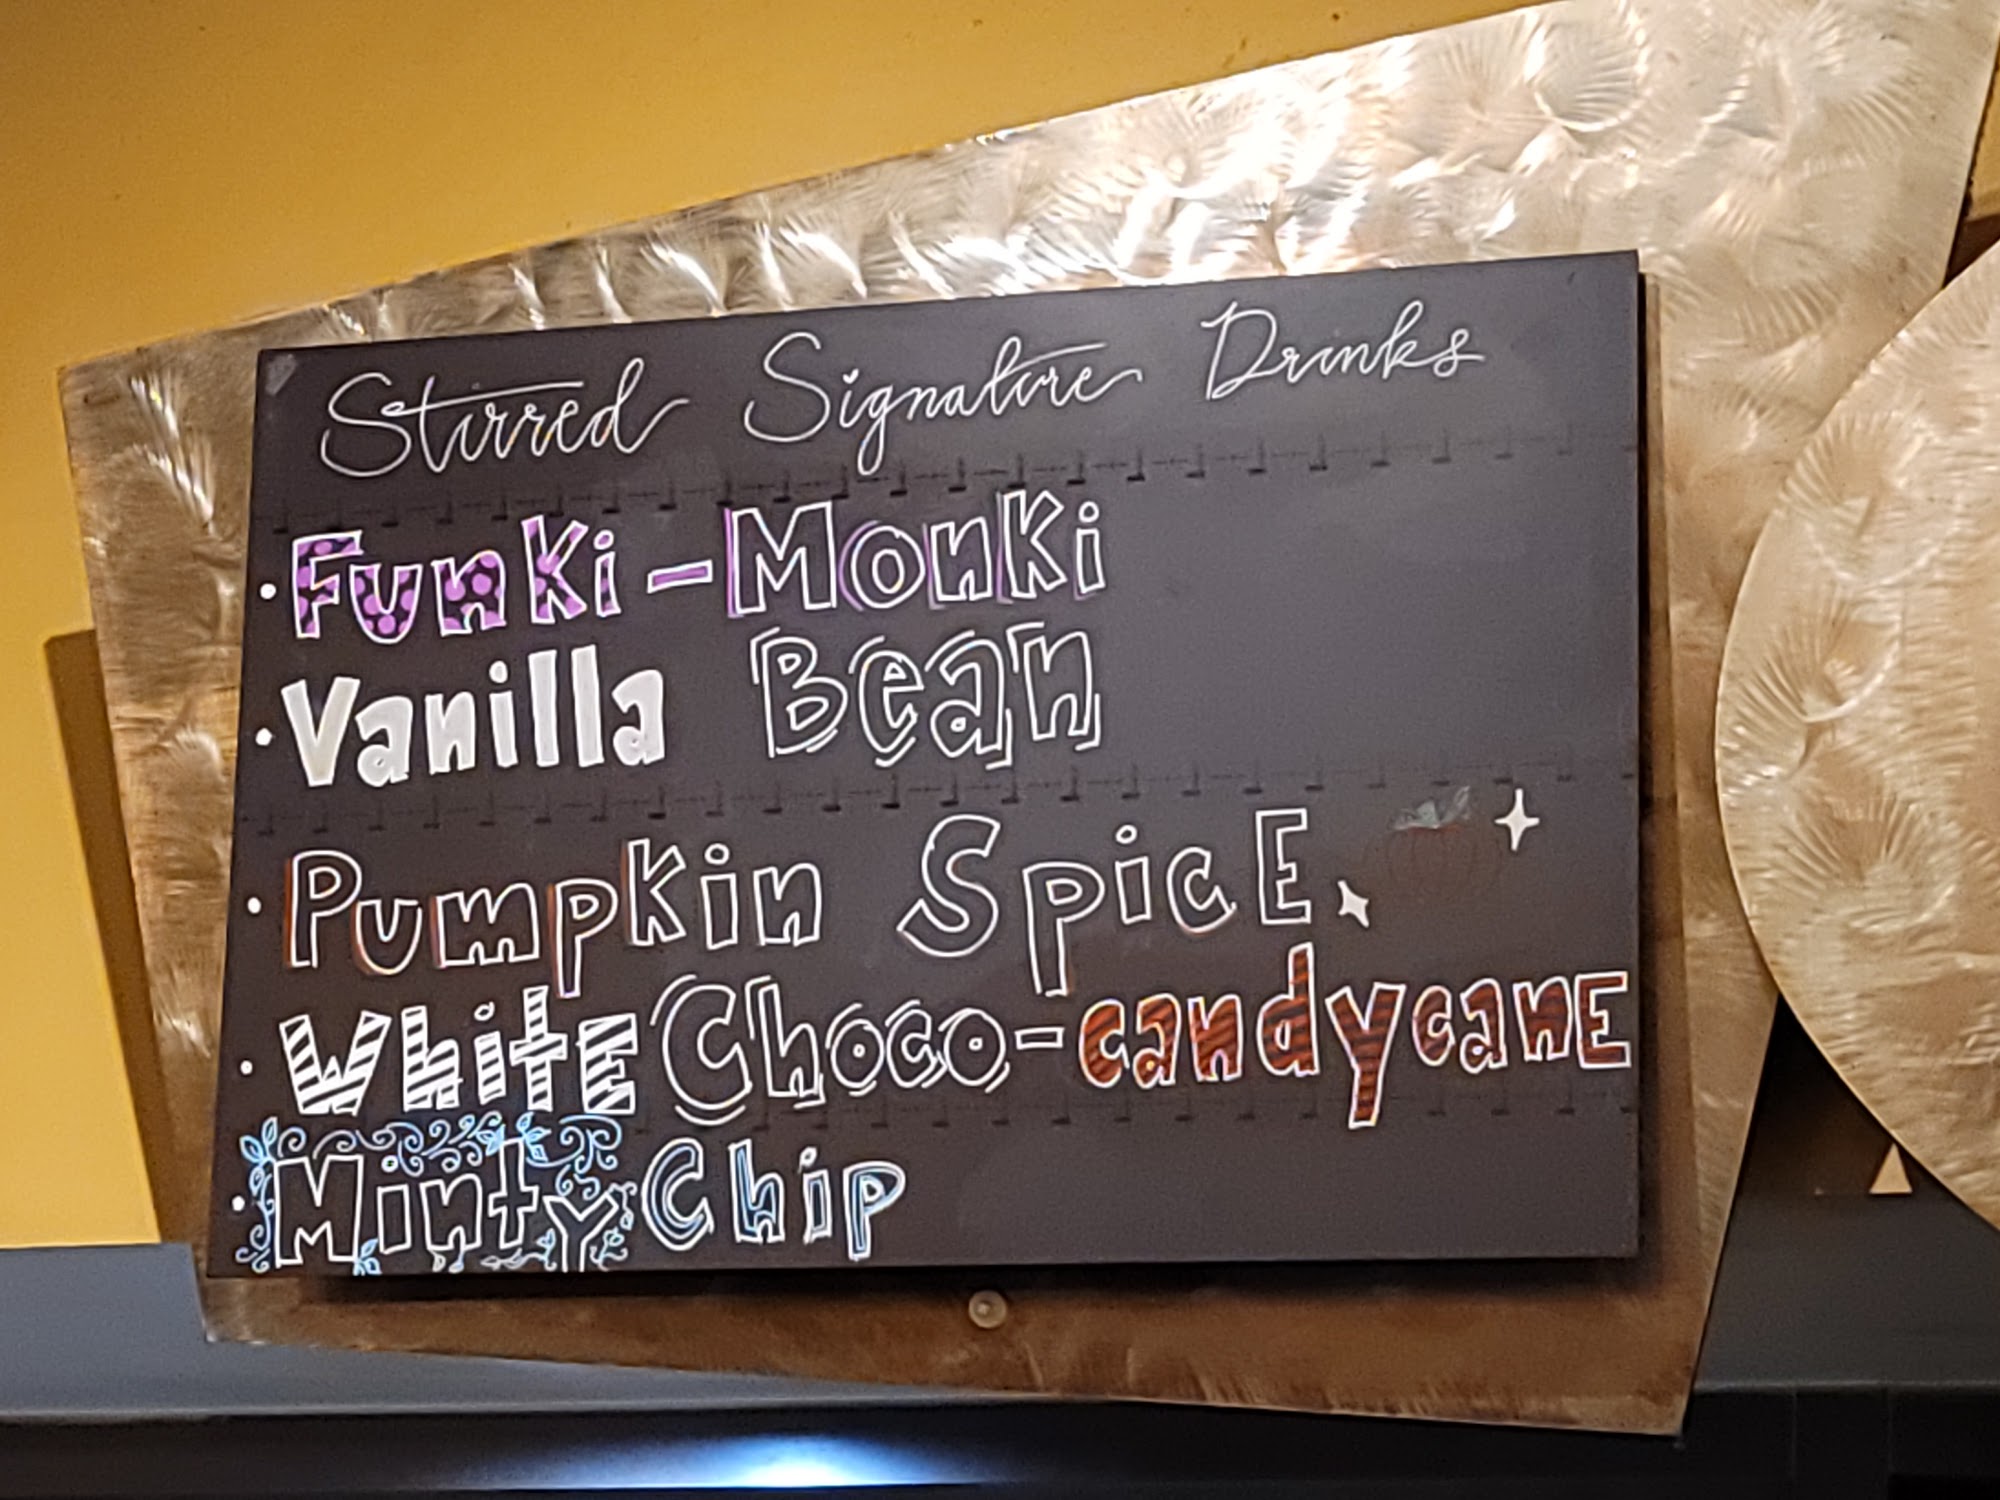 Stirred Signature Drinks
• Funki-Monki
• Vanilla Bean
• Pumpkin SpicE
• WhitE Choco-candycanE
• Minty Chip